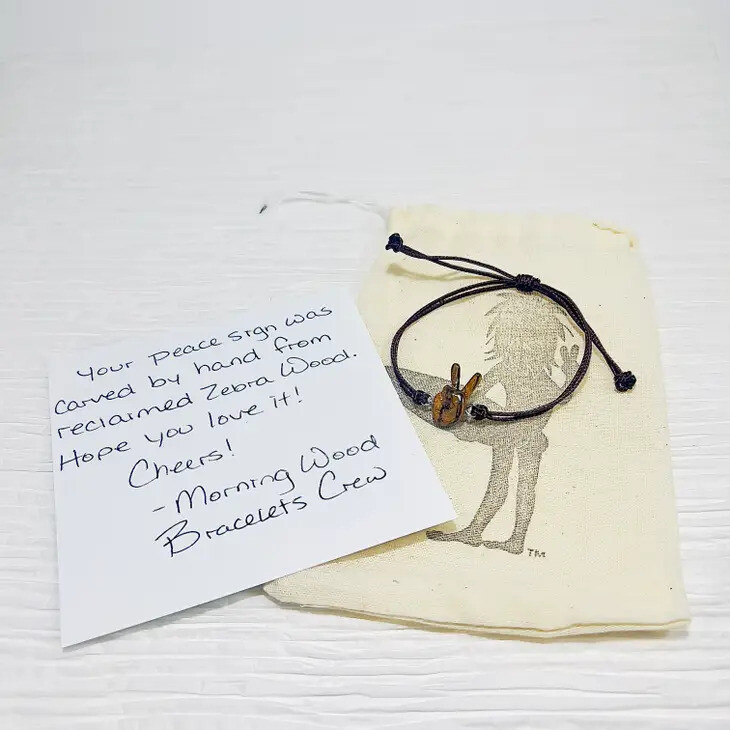 Your peace sign was
carved by hand from
reclaimed Zebra Wood.
Hope you love it!
Cheers!
- Morning Wood
Bracelets Crew
TM